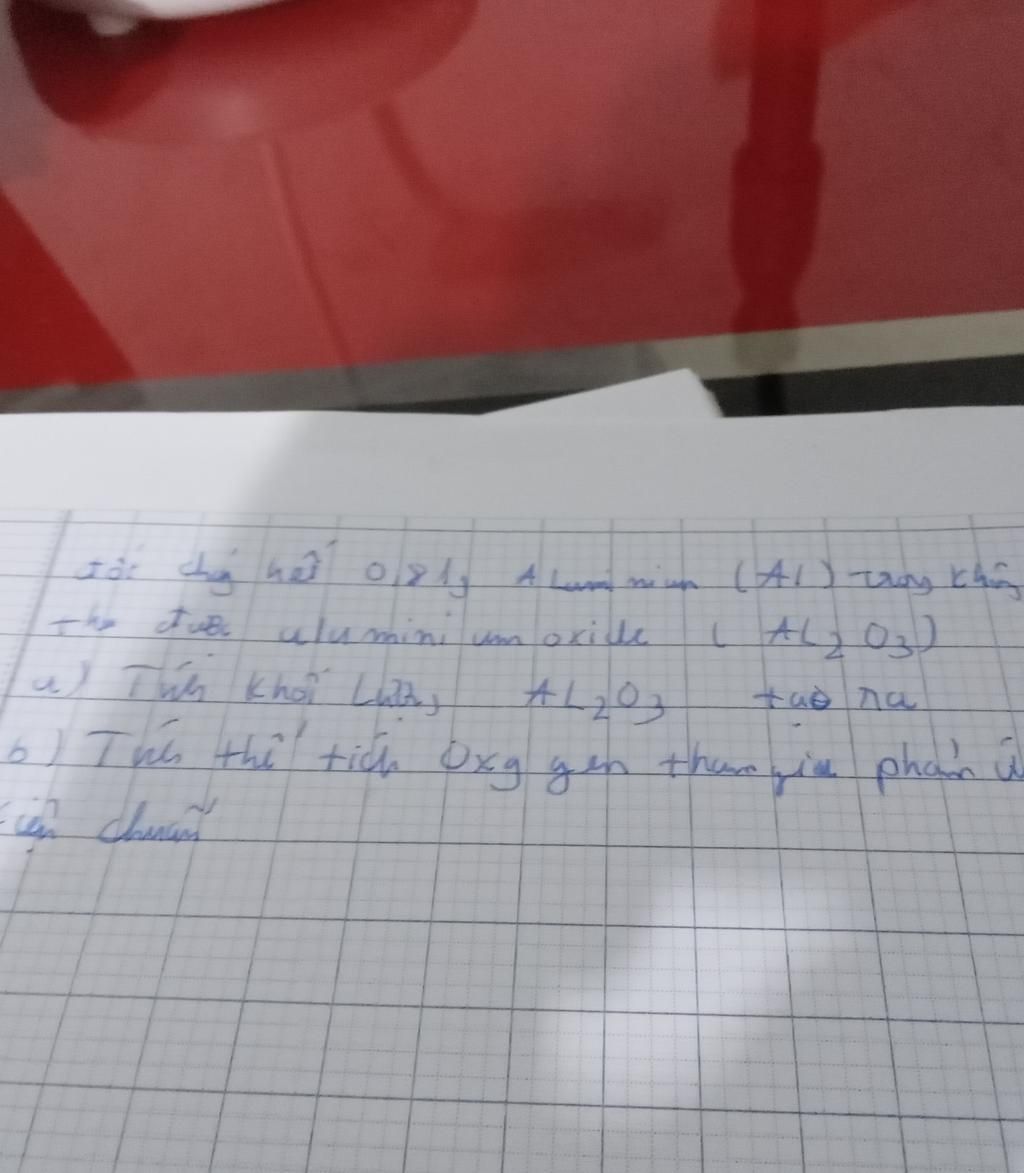 Đốt cháy hết 0,81g Aluminium (Al) trong không
thu được aluminium oxide ( AL2O3)
a) Tính khối Lượng AL2O3 tạo ra
b) Tính thể tích Oxygen tham gia phản
chuẩn